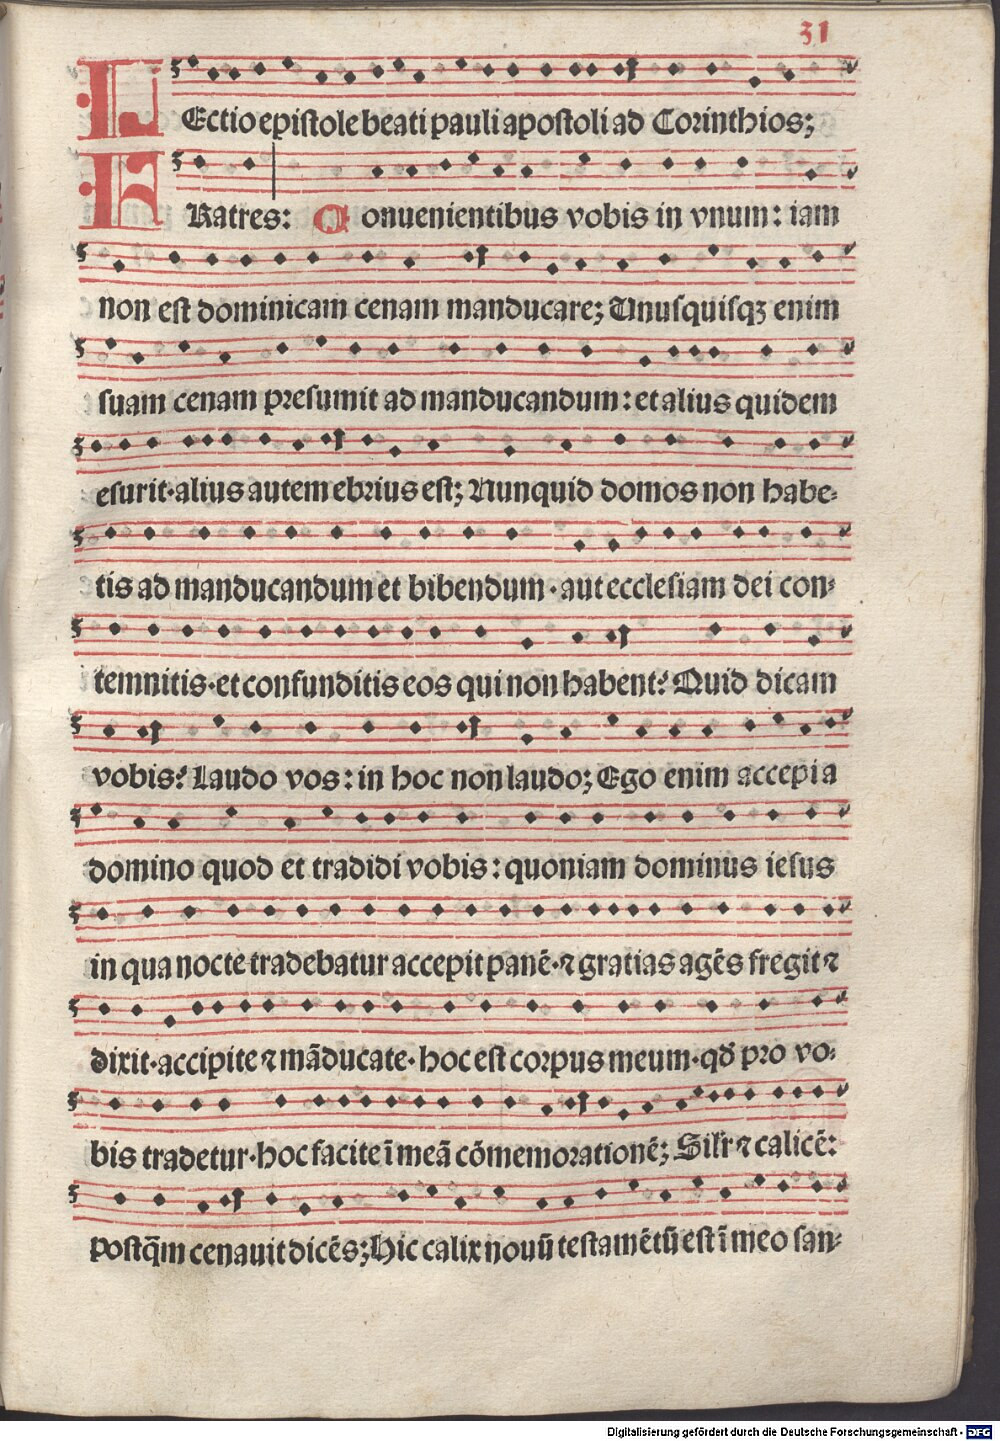 31
LEctio epistole beati pauli apostoli ad Corinthios;
FRatres: Conuenientibus vobis in vnum: iam
non est dominicam cenam manducare; Unusquisqꝫ enim
suam cenam presumit ad manducandum: et alius quidem
esurit·alius autem ebrius est; Nunquid domos non habe⸗
tis ad manducandum et bibendum·aut ecclesiam dei con⸗
temnitis·et confunditis eos qui non habent? Quid dicam
vobis? Laudo vos: in hoc non laudo; Ego enim accepi a
domino quod et tradidi vobis: quoniam dominus iesus
in qua nocte tradebatur accepit panē·⁊ gratias agēs fregit ⁊
dixit·accipite ⁊ māducate·hoc est corpus meum·qđ pro vo⸗
bis tradetur·hoc facite ī meā cōmemorationē; Silr̄ ⁊ calicē:
postq̄m cenauit dicēs; Hic calix nouū testamētū est ī meo san⸗
Digitalisierung gefördert durch die Deutsche Forschungsgemeinschaft - DFG